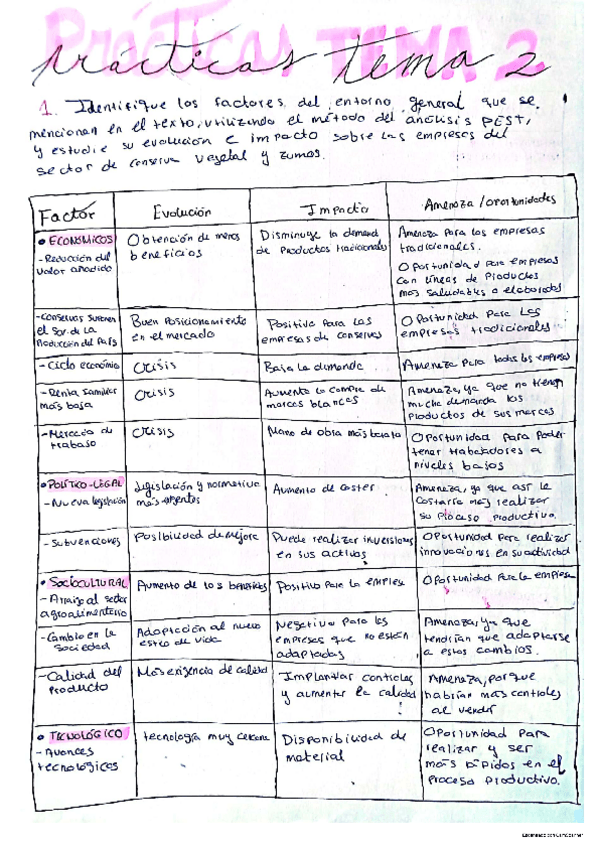 Prácticas TEMA 2
prácticas tema 2
1. Identifique los factores del entorno general que se
mencionan en el texto, utilizando el método del análisis PEST,
y estudie su evolución e impacto sobre las empresas del
sector de conserva vegetal y zumos.
Factor Evolución Impacto Amenaza/oportunidades
• ECONÓMICOS
- Reducción del
valor añadido
Obtención de menos
beneficios
Disminuye la demanda
de productos tradicionales
Amenaza para las empresas
tradicionales.
Oportunidad para empresas
con líneas de productos
más saludables o elaborados
- Conservas suponen
el 50% de la
Producción del País
Buen posicionamiento
en el mercado
Positivo para las
empresas de conserves
Oportunidad para las
empresas tradicionales
- Ciclo económico
Crisis
Baja la demanda
Amenaza para todas las empresas
- Renta familiar
más baja
Crisis
Aumenta la compra de
marcas blancas
Amenaza, ya que no tienen
mucha demanda los
productos de sus marcas
- Mercado de
trabajo
Crisis
Mano de obra más barata
Oportunidad para poder
tener trabajadores a
niveles bajos
• POLÍTICO-LEGAL
- Nueva legislación
Legislación y normativa
más exigentes
Aumento de costes
Amenaza, ya que así le
costaría más realizar
su proceso productivo.
- Subvenciones
Posibilidad de mejora
Puede realizar inversiones
en sus activos
Oportunidad para realizar
innovaciones en su actividad
• SOCIOCULTURAL
- Arraigo al sector
agroalimentario
Aumento de los beneficios
Positivo para la empresa
Oportunidad para la empresa
- Cambio en la
sociedad
Adaptación al nuevo
estilo de vida
Negativo para las
empresas que no están
adaptadas
Amenaza, ya que
tendrían que adaptarse
a estos cambios.
- Calidad del
producto
Mas exigencia de calidad
Implantar controles
y aumentar la calidad
Amenaza, porque
habrían más controles
al vender
• TECNOLÓGICO
- Avances
tecnológicos
tecnología muy cercana
Disponibilidad de
material
Oportunidad para
realizar y ser
más rápidos en el
proceso productivo.